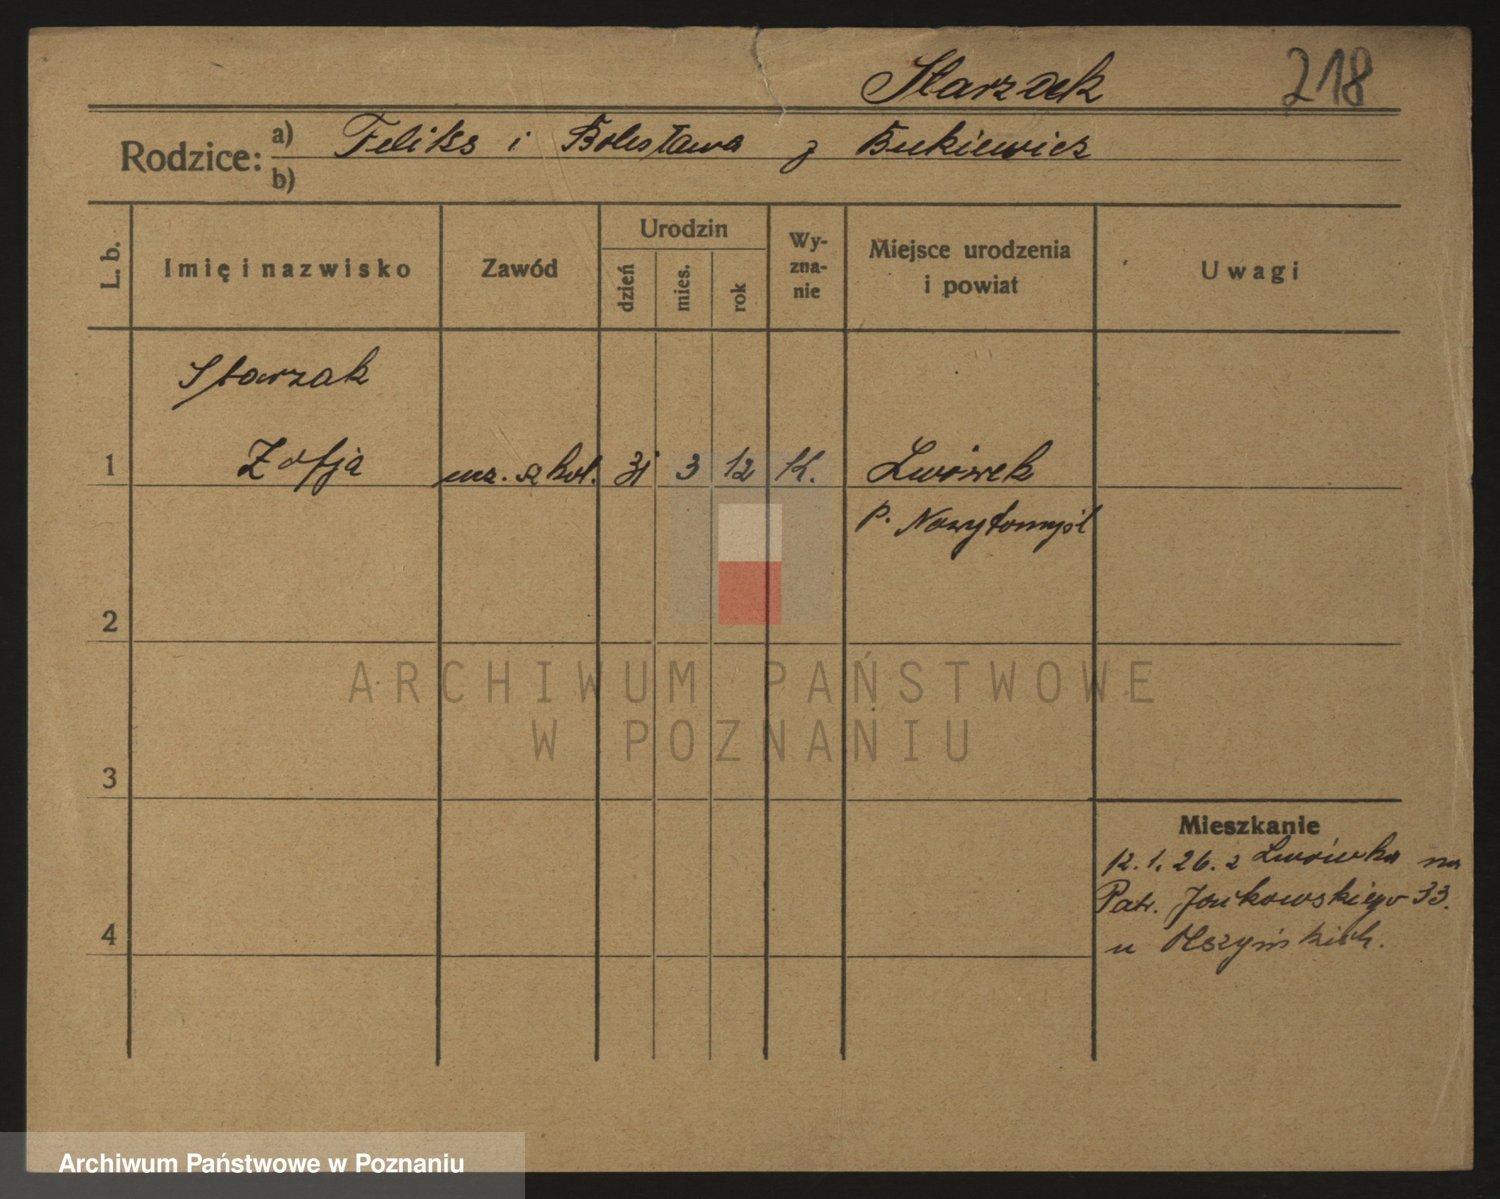 Starzak
218
Rodzice: a) Feliks i Bolesława z Bukiewicz
b)
L. b.
Imię i nazwisko
Zawód
Urodzin
dzień
mies.
rok
Wy-
zna-
nie
Miejsce urodzenia
i powiat
Uwagi
Starzak
1 Zofja ucz. szkol. 31 3 12 K. Lwówek
p. Nowytomyśl
2
3
4
Mieszkanie
12.1.26. z Lwówka na
Patr. Jackowskiego 33.
u Olszyńskich.
ARCHIWUM PAŃSTWOWE
W POZNANIU
Archiwum Państwowe w Poznaniu